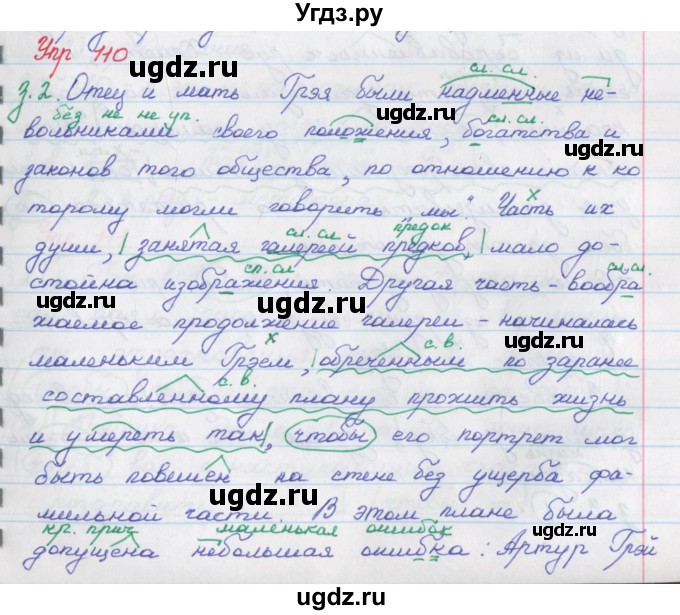 Угдз.ру
Упр 110
сл. сл.
з.2. Отец и мать Грэя были надменные не-
без не не уп. сл. сл.
вольниками своего положения, богатства и
законов того общества, по отношению к ко
торому могли говорить "мы". Часть их
х
предок
сл. сл
души, занятая галереей предков, мало до-
сл. сл сл. сл.
стойна изображения. Другая часть - вообра
жаемое продолжение галереи - начиналась
х с. в.
маленьким Грэем, обреченным по заранее
с. в.
составленному плану прожить жизнь
и умереть так, чтобы его портрет мог
быть повешен на стене без ущерба фа-
мильной части. В этом плане была
кр. прич маленькая ошибок
допущена небольшая ошибка: Артур Грэй
ugdz.ru
ugdz.ru
ugdz.ru
ugdz.ru
ugdz.ru
ugdz.ru
ugdz.ru
ugdz.ru
ugdz.ru
ugdz.ru
ugdz.ru
Угдз.ру